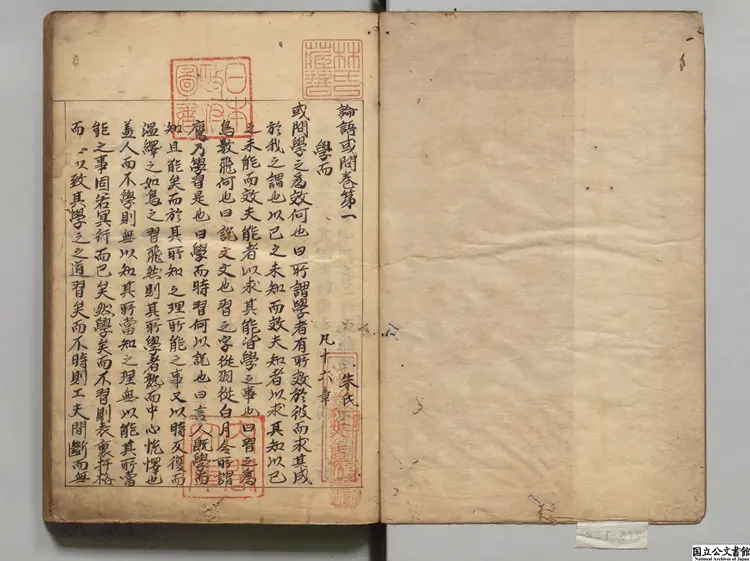 論語或問卷第一
朱氏
學而
凡十六章
或問學之為效何也曰所謂學者有所效於彼而求其成
於我之謂也以己之未知而效夫知者以求其知以己
之未能而效夫能者以求其能皆學之事也曰習之為
鳥數飛何也曰說文文也習之字從羽從白月令所謂
鷹乃學習是也曰學而時習何以說也曰言人既學而
知且能矣而於其所知之理所能之事又以時反復而
溫繹之如鳥之習飛然則其所學者熟而中心悅懌也
蓋人而不學則無以知其所當知之理無以能其所當
能之事固若冥行而已矣然學矣而不習則表裏扞格
而以致其學之之道習矣而不時則工夫間斷而無
林氏藏書
日本政府圖書
国立公文書館
National Archives of Japan